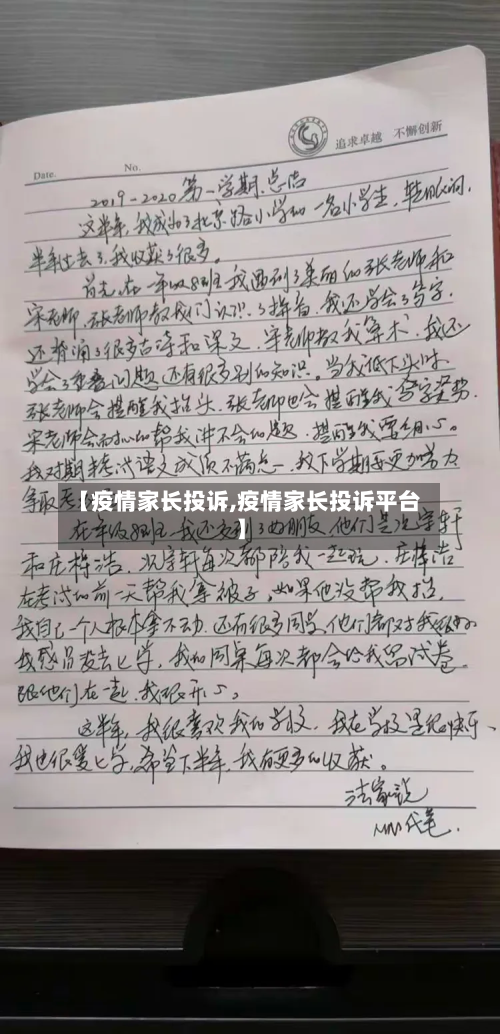 追求卓越 不懈创新
Date. No.
2019-2020第一学期总结
这半年,我成为了北京路小学的一名小学生,转眼间,
半年过去了,我收获了很多。
首先,在一年级8班我遇到了美丽的张老师和
宋老师,张老师教我们认识了拼音,我还学会了写字,
还背诵了很多古诗和课文,宋老师教我算术,我还
学会了看图问题,还有很多别的知识。当我低下头时,
张老师会提醒我抬头,张老师也会提醒我写字姿势,
宋老师会耐心的帮我讲不会的题,提醒我要细心。
我对期末考试语文成绩不满意,我下学期要更加努力
争取考
【疫情家长投诉,疫情家长投诉平台
】
在一年级8班,我还交到了好朋友,他们是况宇轩
和庄梓浩,况宇轩每次都陪我一起玩,庄梓浩
在考试的前一天帮我拿被子,如果他没帮我抬,
我自己一个人根本拿不动,还有很多同学,他们都对我很好,
我感冒发去上学,我的同桌每次都会给我留试卷。
跟他们在一起,我很开心。
这半年,我很喜欢我的学校,我在学校里很快乐、
我也很爱上学,希望下半年,我有更多的收获。
法家说
MM代笔.